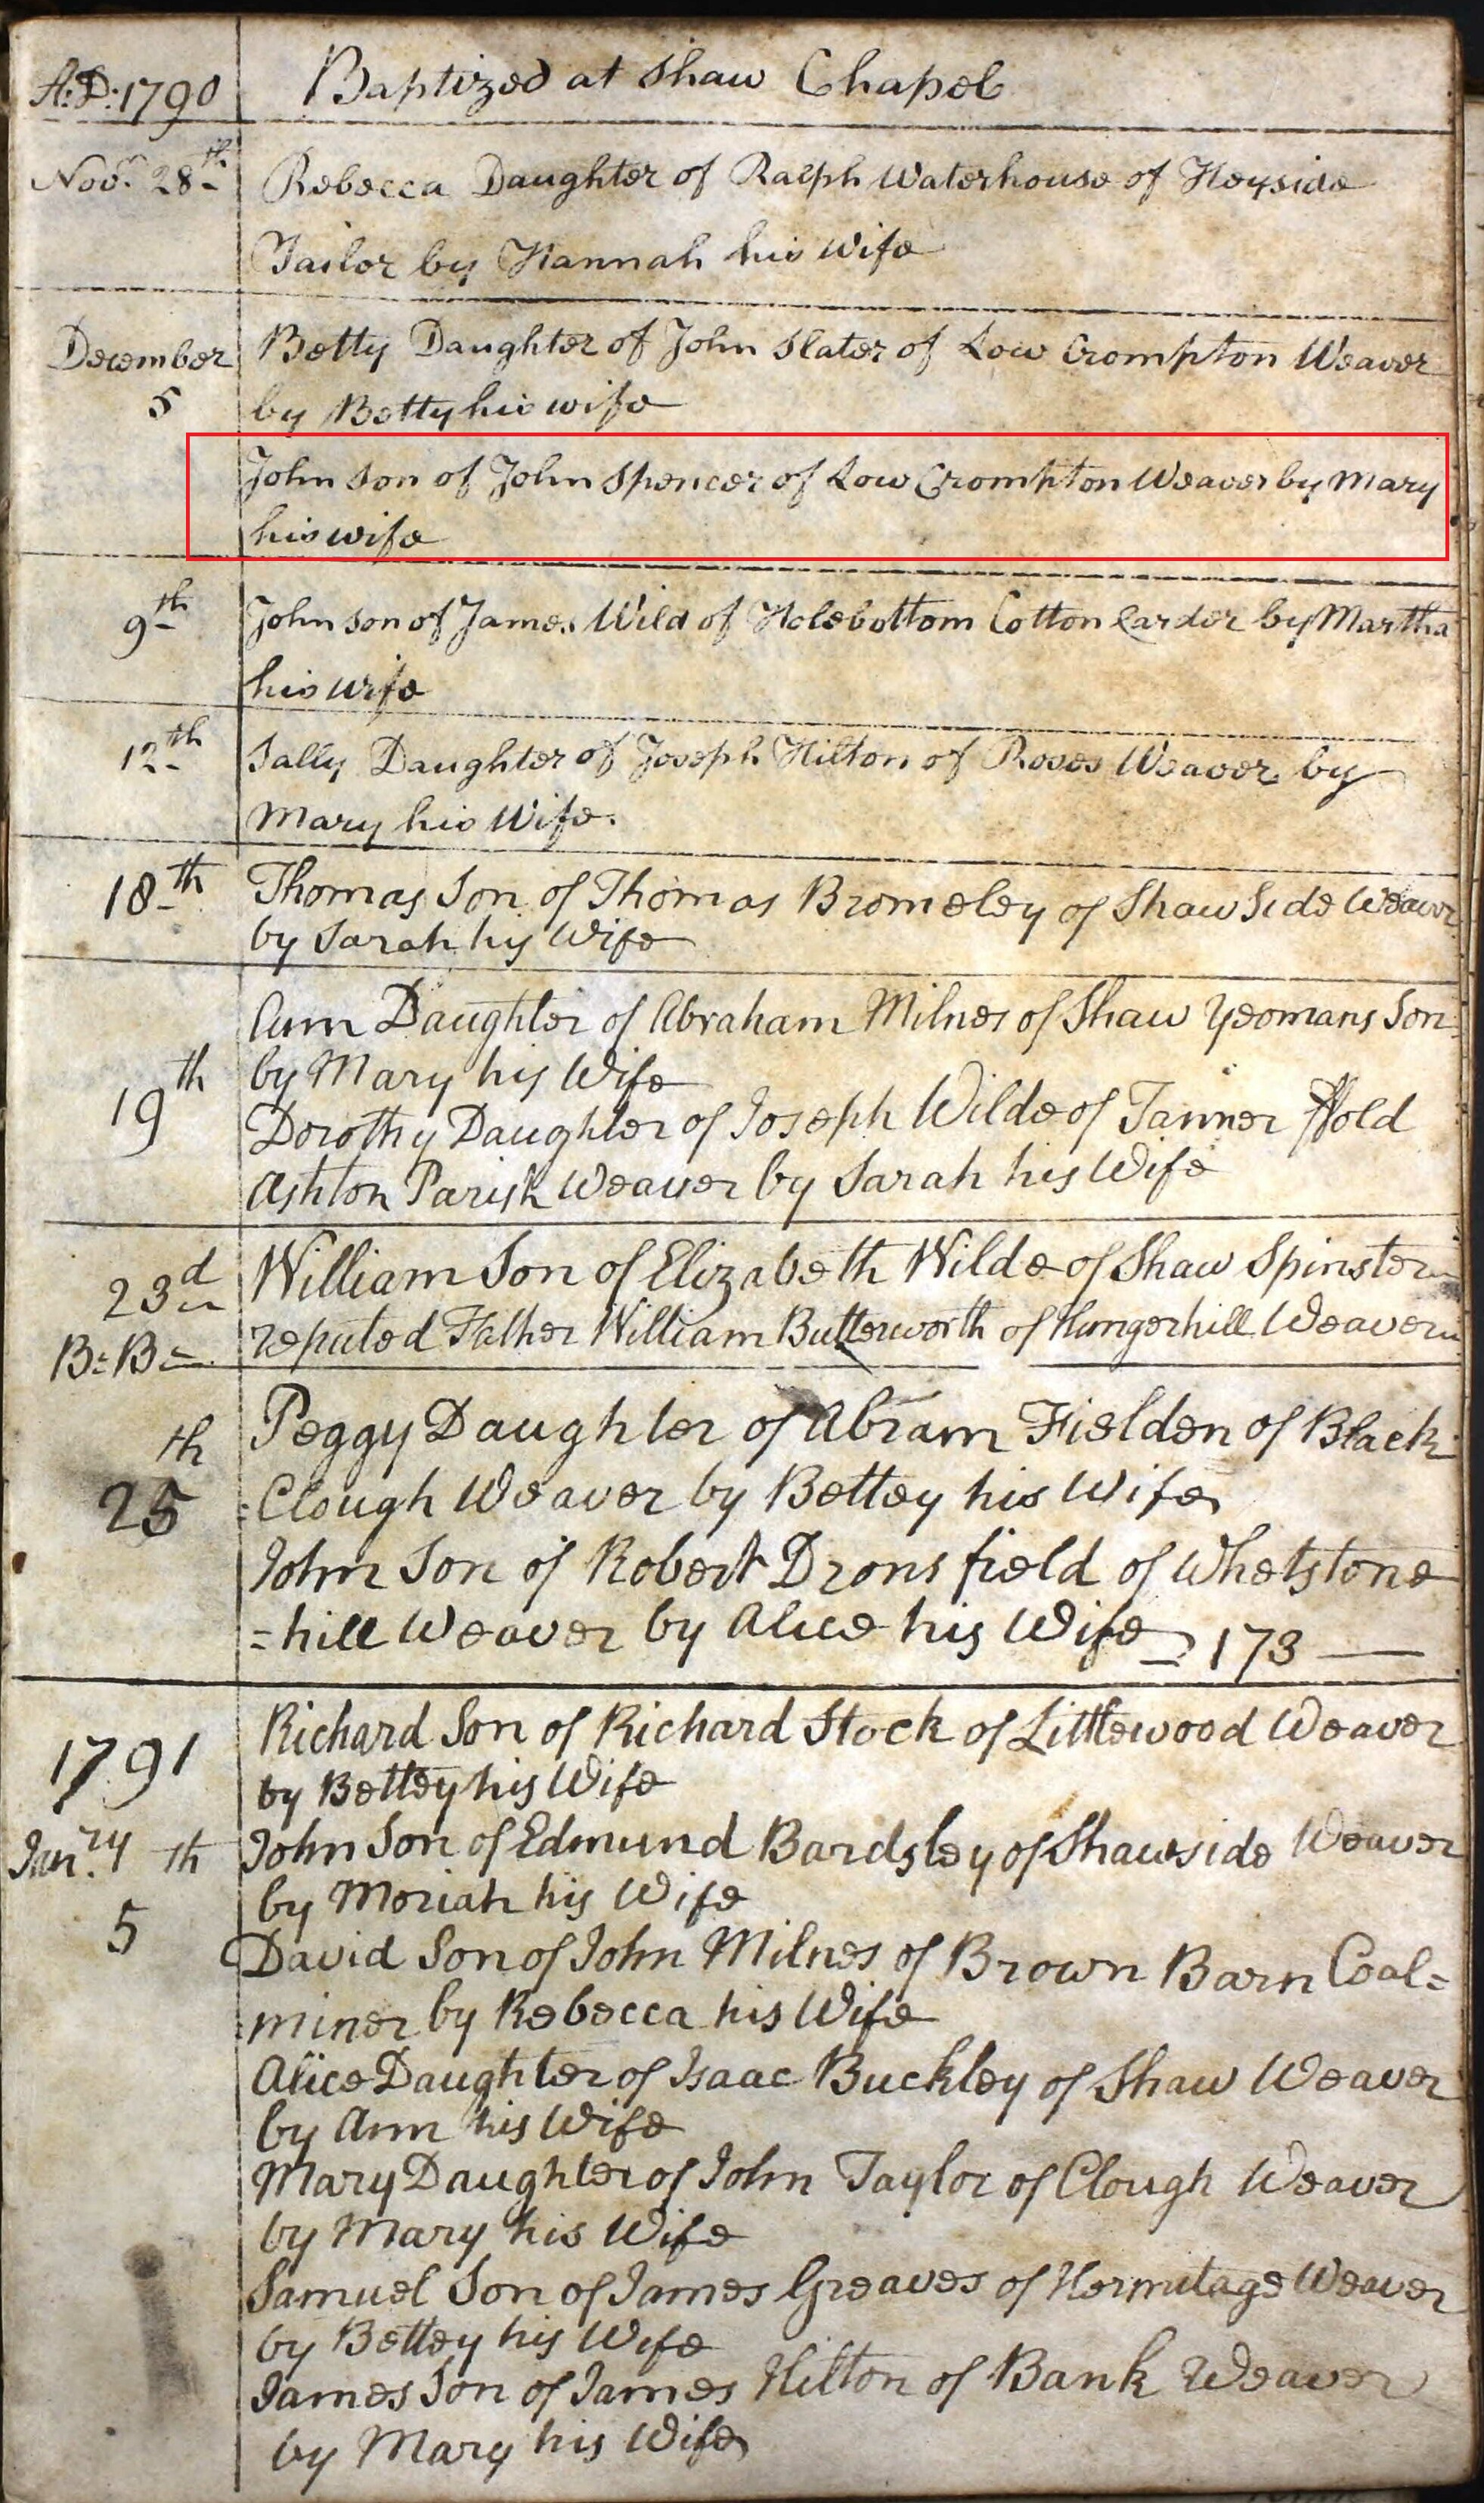 A:D:1790 Baptized at Shaw Chapel
Novr. 28th Rebecca Daughter of Ralph Waterhouse of Heyside
Tailor by Hannah his wife
December Betty Daughter of John Slater of Low Crompton Weaver
5 by Betty his wife
John Son of John Spencer of Low Crompton Weaver by Mary
his wife
9th John son of James Wild of Holebottom Cotton Carder by Martha
his wife
12th Sally Daughter of Joseph Hilton of Roses Weaver by
Mary his Wife.
18th Thomas Son of Thomas Bromeley of Shaw Side Weaver
by Sarah his Wife
Ann Daughter of Abraham Milnes of Shaw Yeomans Son
19th by Mary his Wife
Dorothy Daughter of Joseph Wilde of Tanner Fold
Ashton Parish Weaver by Sarah his Wife
23d William Son of Elizabeth Wilde of Shaw Spinster
B:B= reputed Father William Butterworth of Hungerhill Weaver
25th Peggy Daughter of Abram Fielden of Black
=Clough Weaver by Bettey his Wife
John Son of Robert Dronsfield of Whetstone
=hill Weaver by Alice his Wife 173
1791 Richard Son of Richard Stock of Littlewood Weaver
by Bettey his Wife
Janry 5th John Son of Edmund Bardsley of Shawside Weaver
by Moriah his Wife
David Son of John Milnes of Brown Barn Coal=
miner by Rebecca his Wife
Alice Daughter of Isaac Buckley of Shaw Weaver
by Ann his Wife
Mary Daughter of John Taylor of Clough Weaver
by Mary his Wife
Samuel Son of James Greaves of Hermitage Weaver
by Bettey his Wife
James Son of James Hilton of Bank Weaver
by Mary his Wife